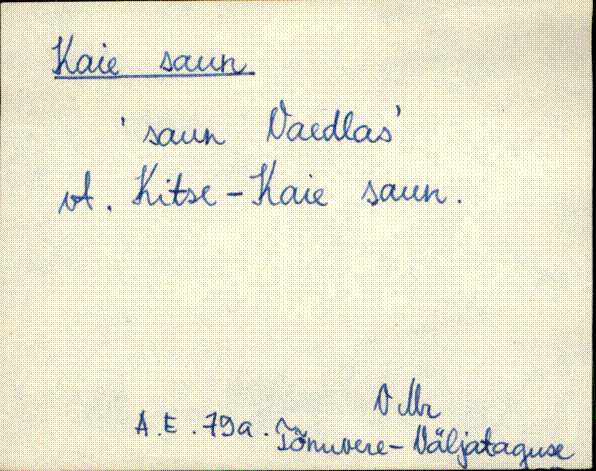 Kaie saun
'saun Vaedlas'
vt. Kitse-Kaie saun.
VMr
A.E. 79a. Tõnuvere-Väljataguse